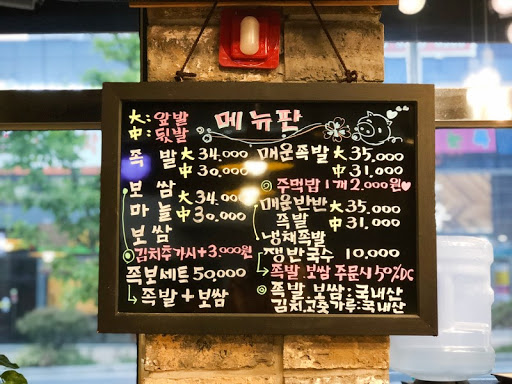 大: 앞발
中: 뒷발
메뉴판
족 발 大 34.000
中 30.000
보 쌈
마 늘
보 쌈
大 34.000
中 30.000
김치추가시+3.000원
족보세트 50,000
족발+보쌈
매운족발 大 35.000
中 31.000
주먹밥 1개 2.000원
매운반반 大 35.000
족발 中 31.000
냉채족발
쟁반국수 10,000
족발.보쌈 주문시 50%DC
족발.보쌈:국내산
김치고춧가루:국내산